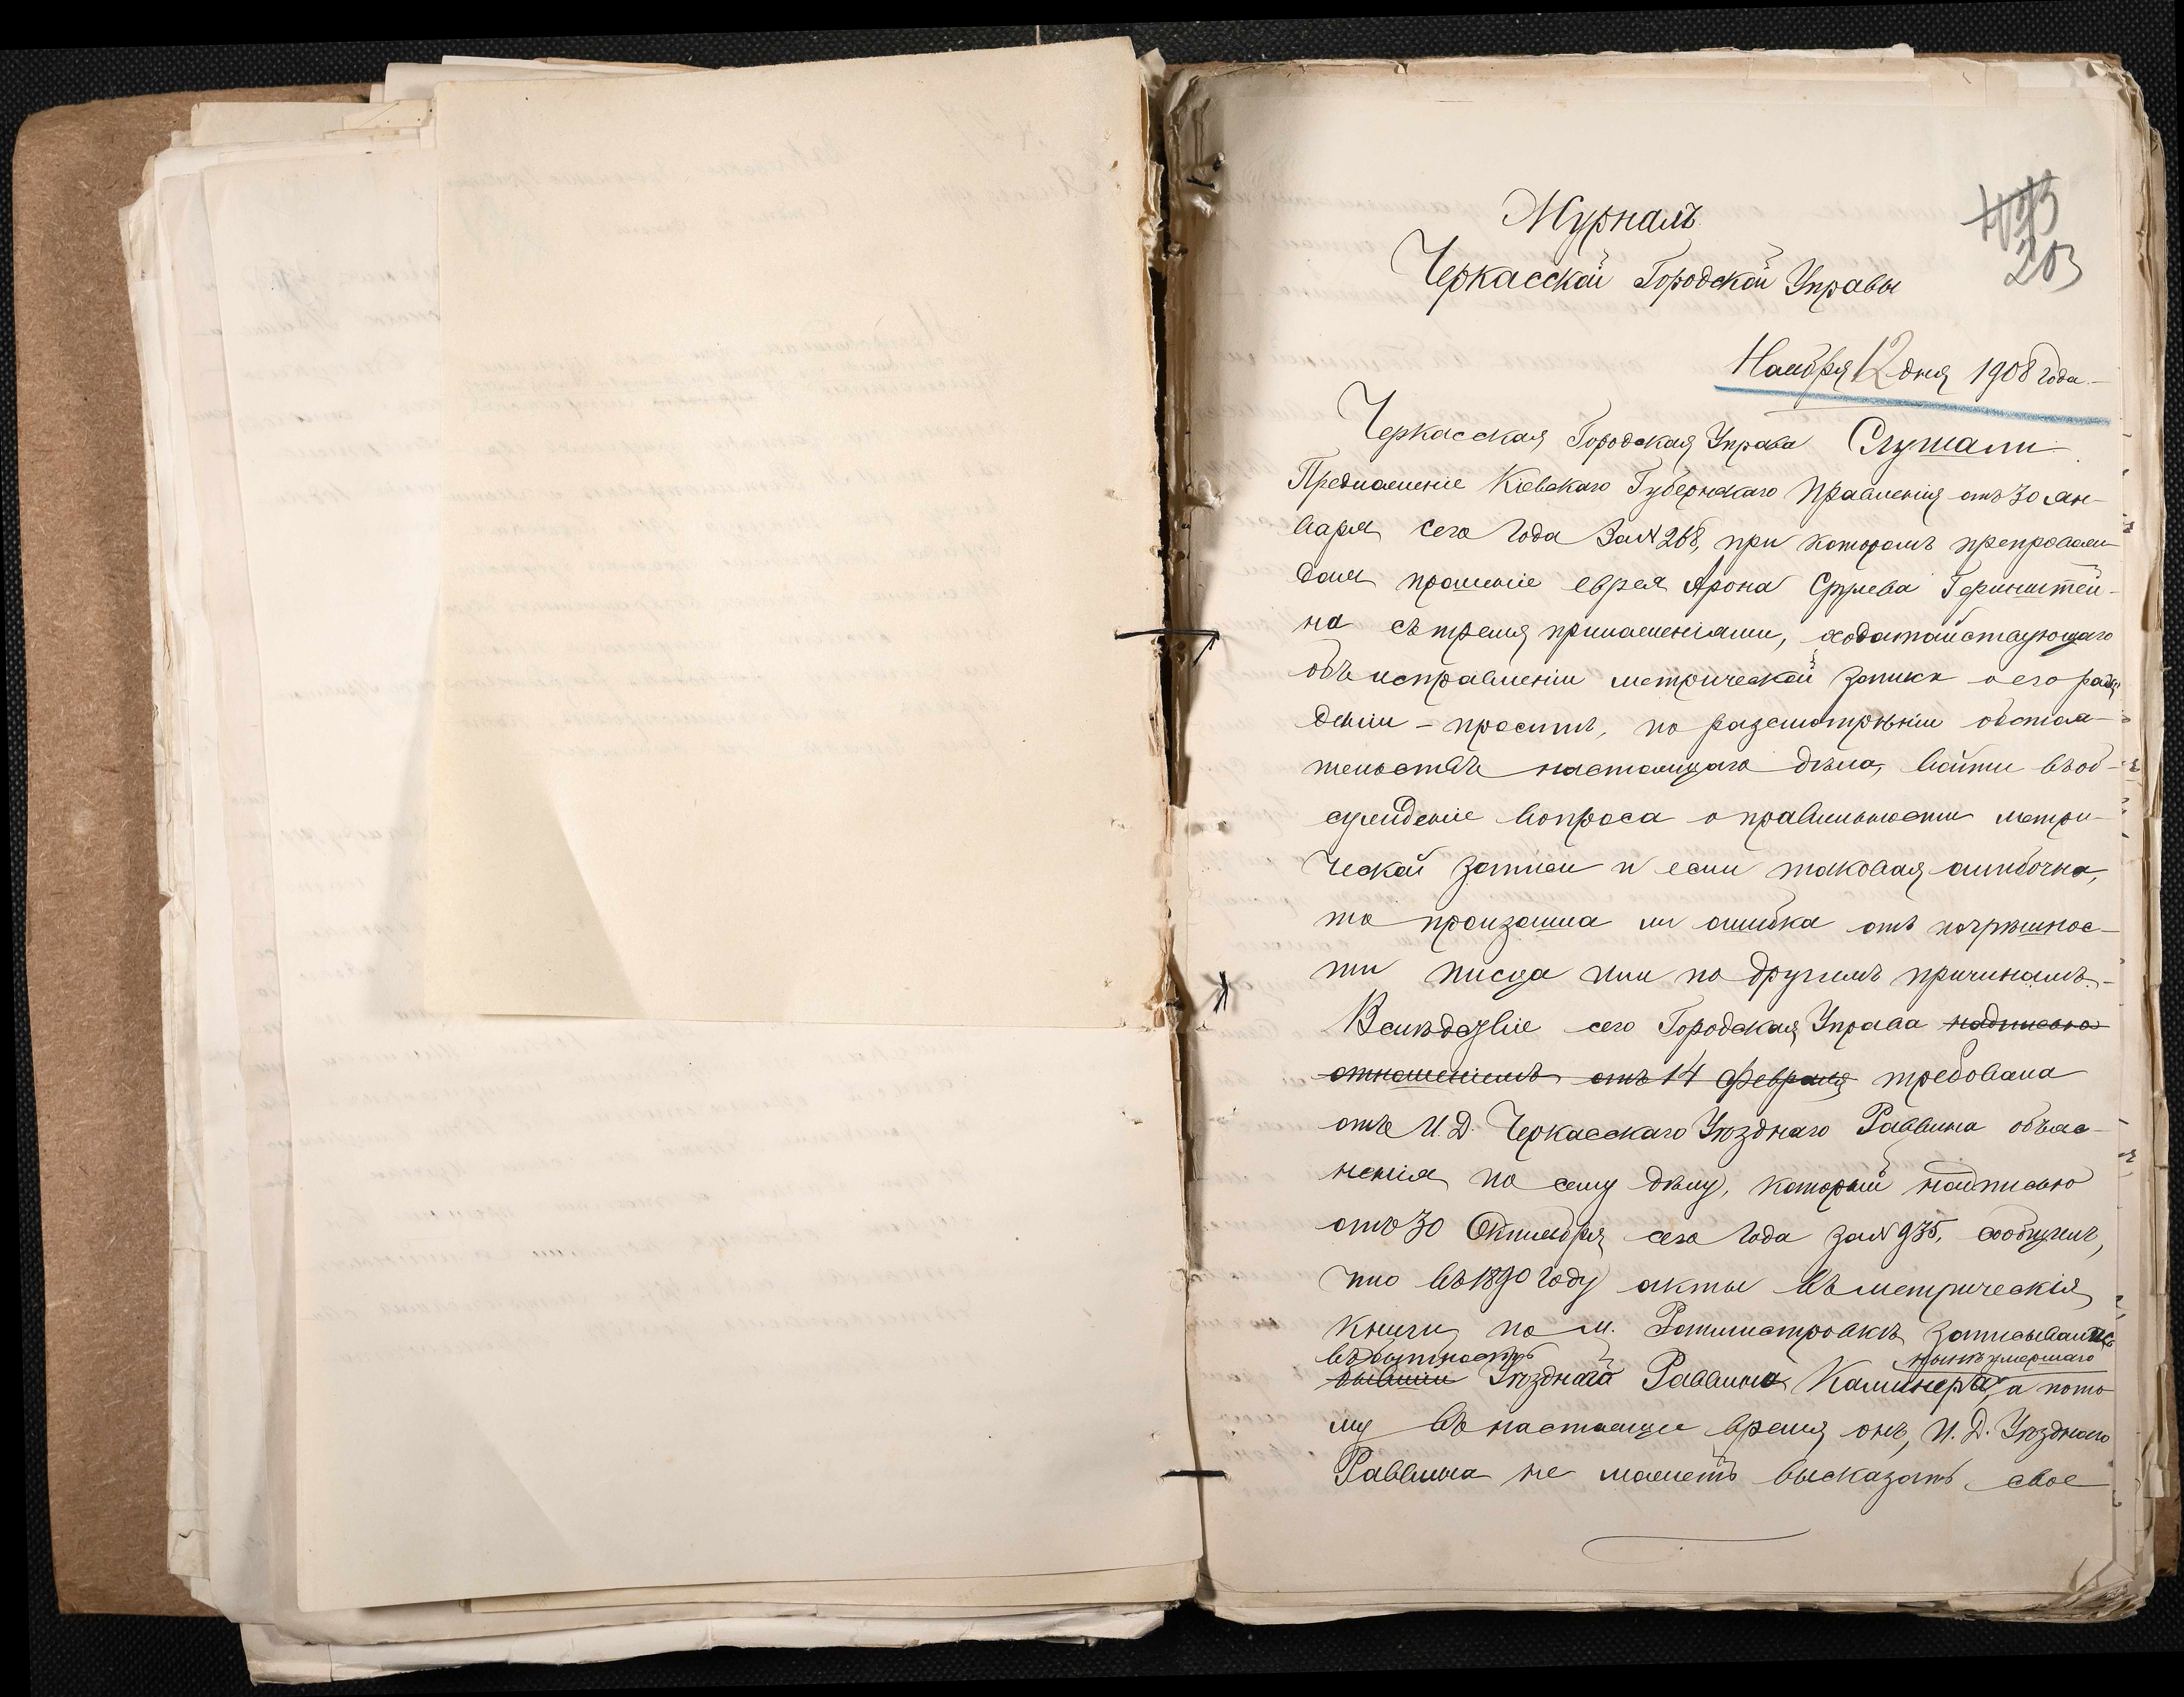 203
Журналъ
Черкасской Городской Управы
Ноября 12 дня 1908 года.–
Черкасская Городская Управа Слушали
Предложеніе Кіевскаго Губернскаго Правленія отъ 30 Ян-
варя сего года за № 268, при которомъ препровож-
дая прошеніе еврея Арона Срулева Геринштей-
на съ тремя приложеніями, ходатайствующаго
объ исправленіи метрической записи о его рож-
деніи – проситъ, по разсмотрѣніи обстоя-
тельствъ настоящаго дѣла, войти въ об-
сужденіе вопроса о правильности метри-
ческой записи и если таковая ошибочна,
то произошла ли ошибка отъ погрѣшнос-
ти писца или по другимъ причинамъ.–
Вслѣдствіе сего Городская Управа надписью
отношеніемъ отъ 14 февраля требовала
отъ И.Д. Черкасскаго Уѣзднаго Раввина объяс-
ненія по сему дѣлу, который надписью
отъ 30 Октября сего года за № 935, сообщилъ,
что въ 1890 году акты въ метрическія
книги по м. Ротмистровкѣ записывались
въ бытность нынѣ умершаго
бывшій Уѣзднаго Раввина Калинера, а пото-
му въ настоящее время онъ, И.Д. Уѣзднаго
Раввина не можетъ высказать свое